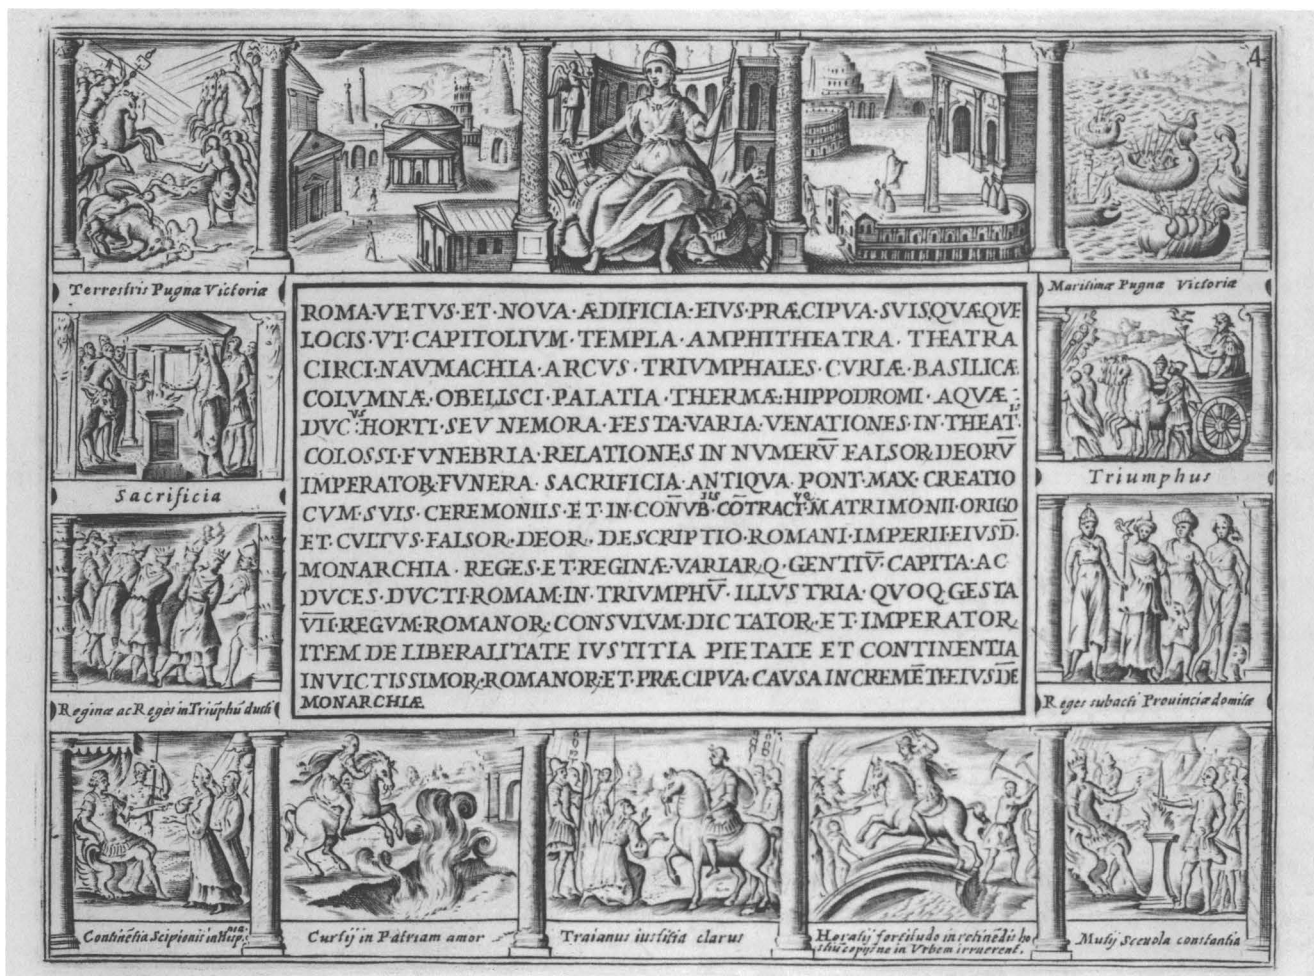 4
Terrestris Pugnæ Victoriæ
Maritimæ Pugnæ Victoriæ
ROMA·VETVS·ET·NOVA·ÆDIFICIA·EIVS·PRÆCIPVA·SVIS·QVÆQVE
LOCIS·VT·CAPITOLIVM·TEMPLA·AMPHITHEATRA·THEATRA
CIRCI·NAVMACHIA·ARCVS·TRIVMPHALES·CVRIÆ·BASILICÆ
COLVMNÆ·OBELISCI·PALATIA·THERMÆ·HIPPODROMI·AQVÆ:
DVC:VS HORTI·SEV NEMORA·FESTA·VARIA·VENATIONES·IN·THEAT·IS
COLOSSI·FVNEBRIA·RELATIONES IN NVMERV̄ FALSOR·DEORV̄
IMPERATOR·FVNERA·SACRIFICIA·ANTIQVA·PONT·MAX·CREATIO
CVM·SVIS·CEREMONIIS·ET·IN·CON̄VB·IIS CŌTRACT·VQ MATRIMONII·ORIGO
ET·CVLTVS·FALSOR·DEOR·DESCRIPTIO·ROMANI·IMPERII·EIVSD·
MONARCHIA·REGES·ET·REGINÆ·VARIAR·Q·GENTIV̄·CAPITA·AC
DVCES·DVCTI·ROMAM·IN·TRIVMPHV̄·ILLVSTRIA·QVOQ·GESTA
V̄II·REGVM·ROMANOR·CONSVLVM·DICTATOR·ET·IMPERATOR
ITEM DE LIBERALITATE IVSTITIA PIETATE ET CONTINENTIA
INVICTISSIMOR·ROMANOR·ET·PRÆCIPVA·CAVSA INCREMĒTI·EIVSDE
MONARCHIÆ
Sacrificia
Triumphus
Reginæ ac Reges in Triūphū ducti
Reges subacti Prouinciæ domitæ
Continētia Scipionis in Hispnia
Curtij in Patriam amor
Traianus iustitia clarus
Horatij fortitudo in retinēdis ho
stiū copijs ne in Vrbem irruerent.
Mutij Sceuola constantia